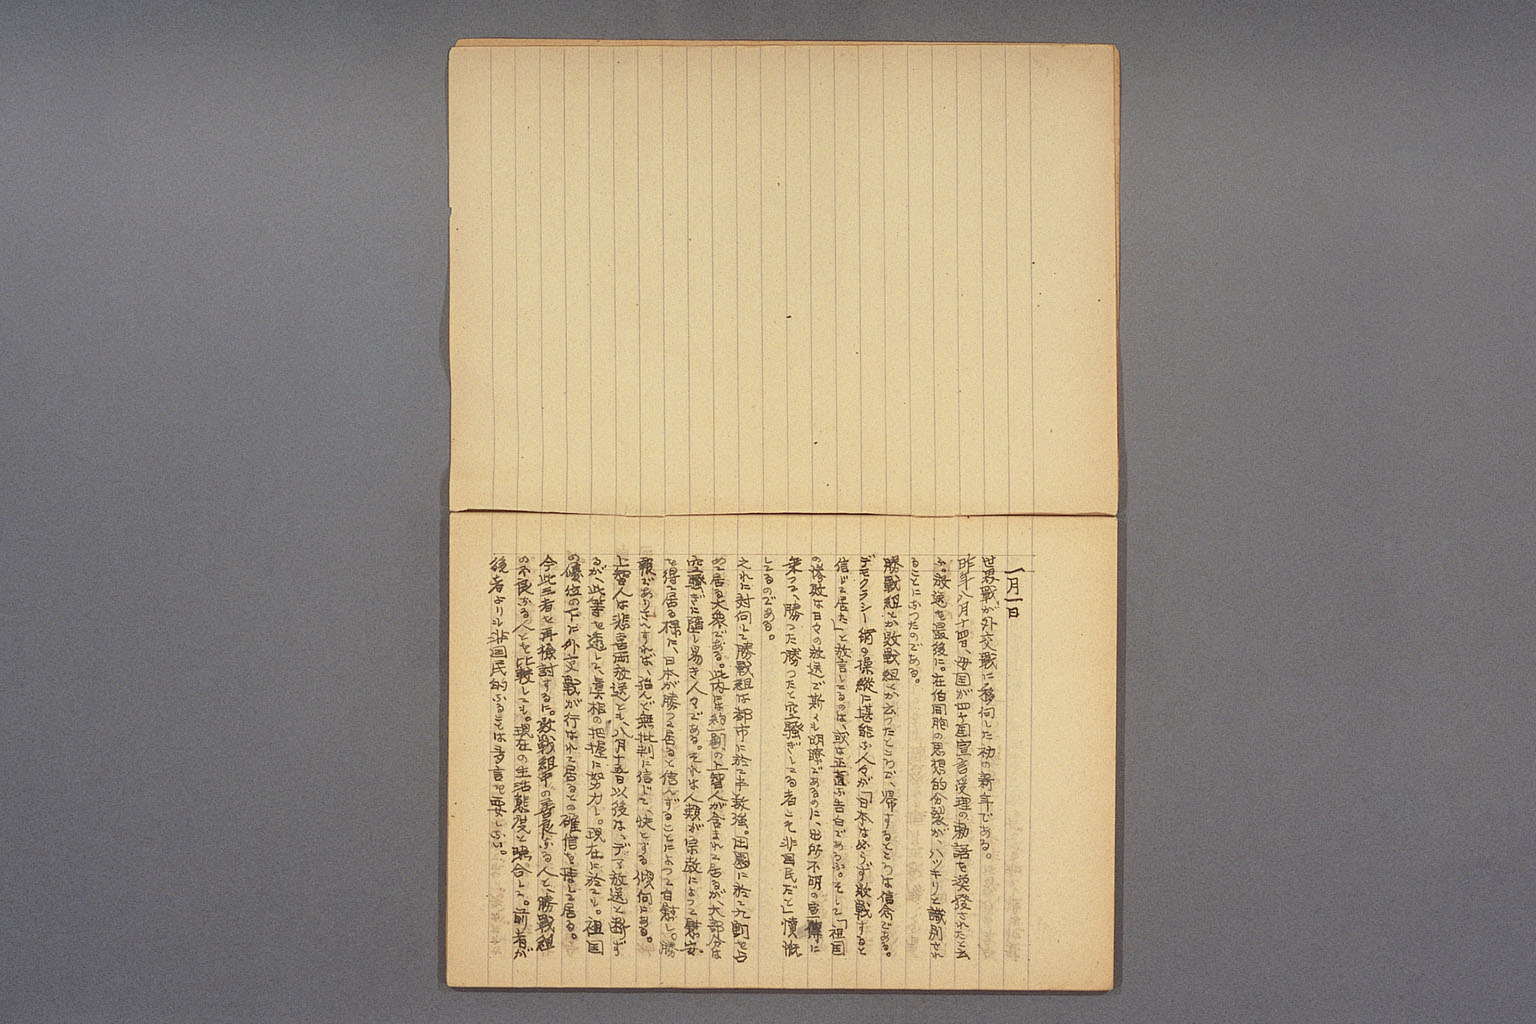 一月一日
世界戦が外交戦に移向した初の新年である。
昨年八月十四日、母国が四ヶ国宣言受理の勅語を渙発されたとか
の放送を最後に。在伯同胞の思想的分裂が、ハッキリと識別され
ることになったのである。
勝戦組とか敗戦組とか云ったところで、帰するところは信念である。
デモクラシー網の操縦に堪能な人々が「日本は必らず敗戦すると
信じて居た」と放言してるのは、或は正直な告白であらふ。そして「祖国
の惨敗は日々の放送で斯くも明瞭であるのに、出所不明の宣傳に
乗って、勝った勝ったと空騒ぎしてる者こそ非国民だと」憤慨
してるのである。
それに対向して勝戦組は都市に於て半数強。田園に於て九割を占
めて居る大衆である。此内には約一割の上智人が含まれて居るが、大部分は
空騒ぎに躍し易き人々である。それは人類が宗教によって慰安
を得て居る様に、日本が勝って居ると信ずることによって自慰し。勝
報でありさへすれば、殆んど無批判に信じて、快とする傾向にある。
上智人は悲喜両放送とも、八月十五日以後は、デマ放送と断ず
るが、此等を透して真相の把握に努力し。現在に於ても。祖国
の優位の下に外交戦が行はれて居るとの確信を持して居る。
今此三者を再検討するに。敗戦組中の善良なる人と勝戦組
の不良なる人とを比較しても。現在の生活態度と照合して。前者が
後者よりも非国民的なることは多言を要しない。